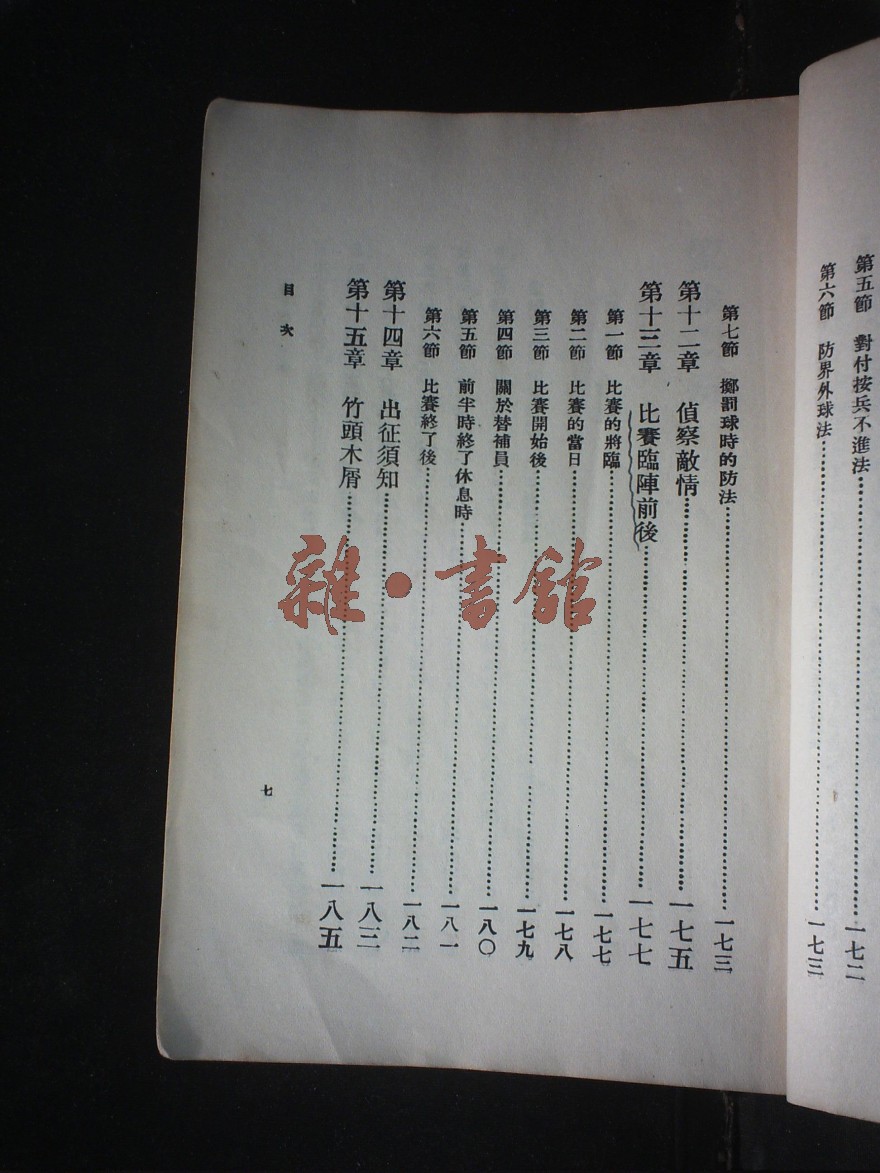 第五節 對付按兵不進法……一七二
第六節 防界外球法……一七三
第七節 擲罰球時的防法……一七三
第十二章 偵察敵情……一七五
第十三章 比賽臨陣前後……一七七
第一節 比賽的將臨……一七七
第二節 比賽的當日……一七八
第三節 比賽開始後……一七九
第四節 關於替補員……一八〇
第五節 前半時終了休息時……一八一
第六節 比賽終了後……一八二
第十四章 出征須知……一八三
第十五章 竹頭木屑……一八五
目次
七
雜·書館